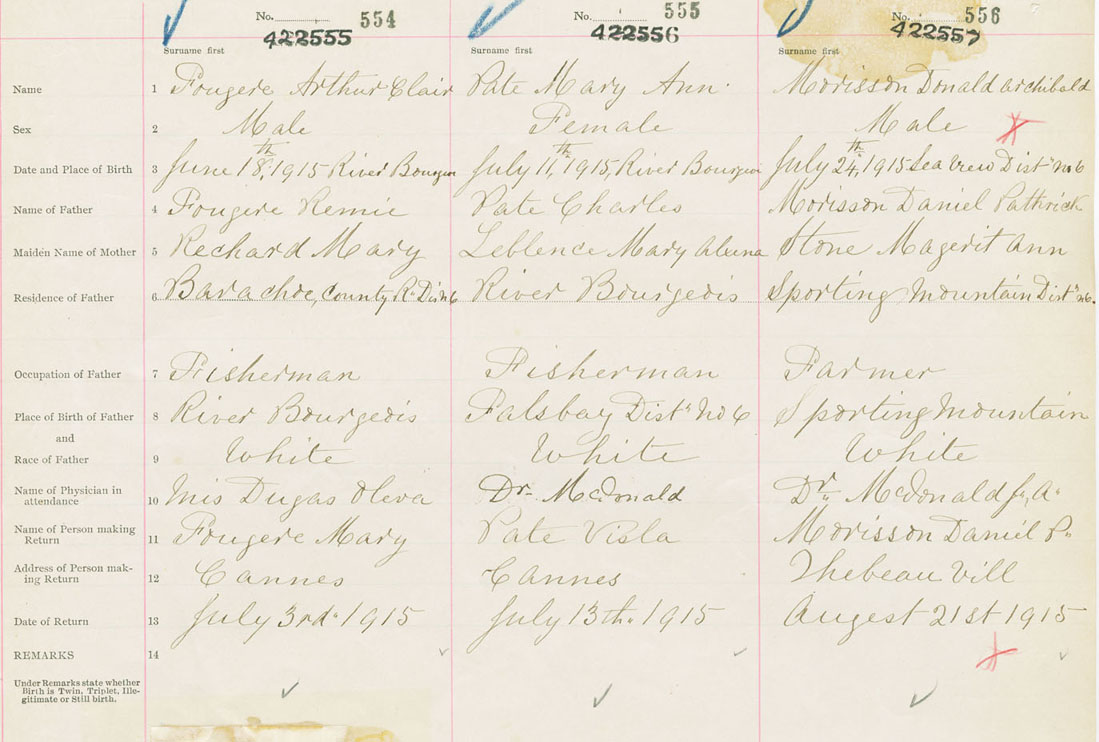 No. 554 No. 555 No. 556
422555 422556 422557
Surname first Surname first Surname first
Name 1 Fougere Arthur Clair Pate Mary Ann Morisson Donald archibald
Sex 2 Male Female Male
Date and Place of Birth 3 June 18th, 1915 River Bourgeois July 11th, 1915, River Bourgeois July 24th, 1915 Sea View Dist" no 6
Name of Father 4 Fougere Remie Pate Charles Morisson Daniel Pathrick
Maiden Name of Mother 5 Rechard Mary Leblence Mary Stone Magerit Ann
Residence of Father 6 Barachoe, County R. Dis 6 River Bourgeois Sporting Mountain Dist" no 6.
Occupation of Father 7 Fisherman Fisherman Farmer
Place of Birth of Father 8 River Bourgeois Falsbay Dist" No 6 Sporting Mountain
and
Race of Father 9 White White White
Name of Physician in
attendance 10 Mis Dugas Oleva Dr. McDonald Dr. McDonald J, A.
Name of Person making
Return 11 Fougere Mary Pate Visla Morisson Daniel P.
Address of Person mak-
ing Return 12 Cannes Cannes Thebeau Vill
Date of Return 13 July 3rd. 1915 July 13th. 1915 Augest 21st 1915
REMARKS 14
Under Remarks state whether
Birth is Twin, Triplet, Ille-
gitimate or Still birth.